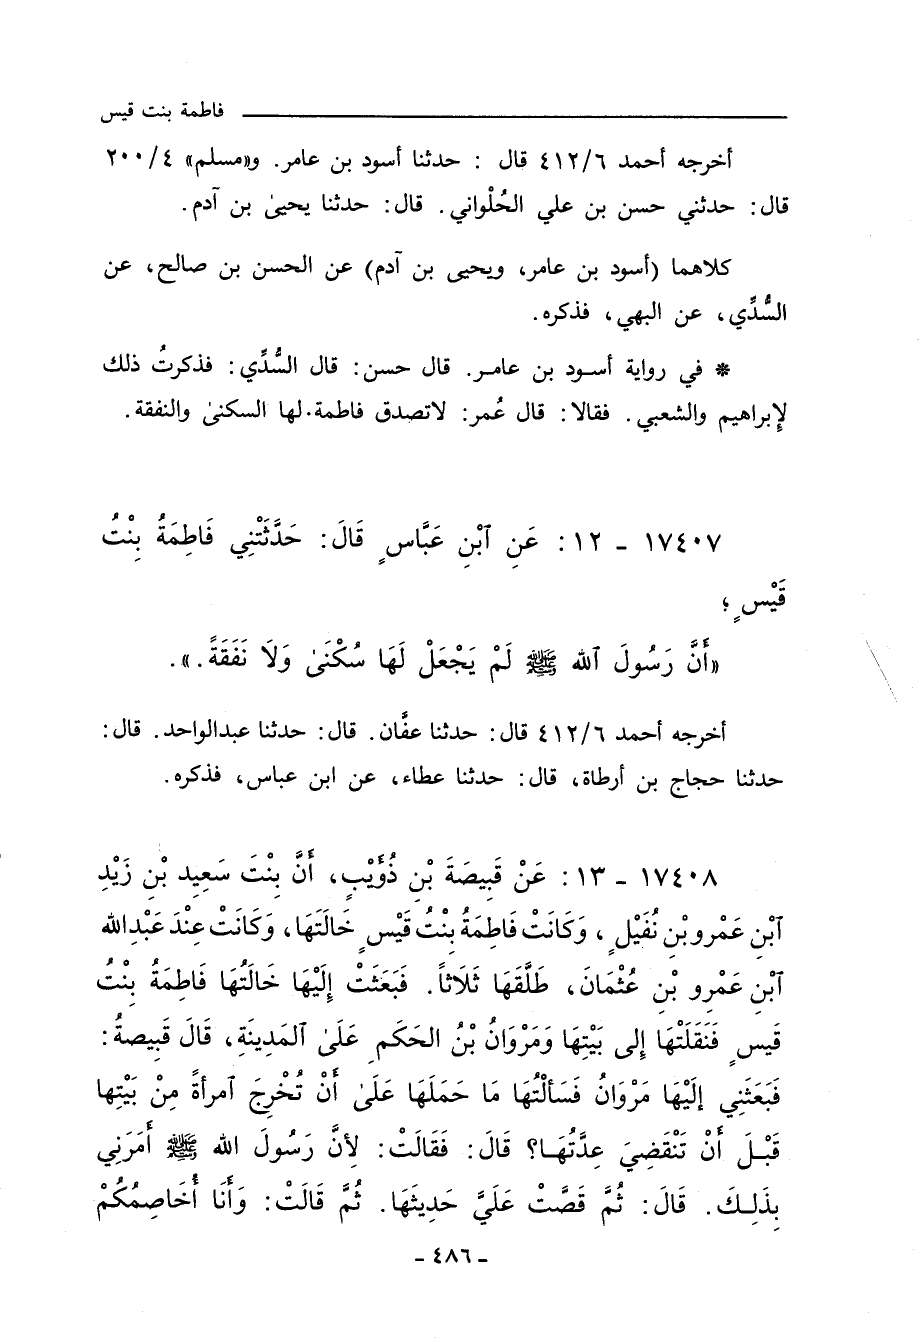 فاطمة بنت قيس
أخرجه أحمد ٤١٢/٦ قال : حدثنا أسود بن عامر. و«مسلم» ٢٠٠/٤
قال: حدثني حسن بن علي الحُلْواني. قال: حدثنا يحيىٰ بن آدم.
كلاهما (أسود بن عامر، ويحيى بن آدم) عن الحسن بن صالح، عن
السُّدِّي، عن البهي، فذكره.
* في رواية أسود بن عامر. قال حسن: قال السُّدِّي: فذكرتُ ذلك
لإبراهيم والشعبي. فقالا: قال عُمر: لاتصدق فاطمة. لها السكنىٰ والنفقة.
١٧٤٠٧ - ١٢: عَنِ ٱبْنِ عَبَّاسٍ قَالَ: حَدَّثَتْنِي فَاطِمَةُ بِنْتُ
قَيْسٍ؛
«أَنَّ رَسُولَ ٱللهِ ﷺ لَمْ يَجْعَلْ لَهَا سُكْنَىٰ وَلَا نَفَقَةً.».
أخرجه أحمد ٤١٢/٦ قال: حدثنا عفَّان. قال: حدثنا عبدالواحد. قال:
حدثنا حجاج بن أرطاة، قال: حدثنا عطاء، عن ابن عباس، فذكره.
١٧٤٠٨ - ١٣: عَنْ قَبِيصَةَ بْنِ ذُؤَيْبٍ، أَنَّ بِنْتَ سَعِيدِ بْنِ زَيْدِ
ٱبْنِ عَمْرِو بْنِ نُفَيْلٍ، وَكَانَتْ فَاطِمَةُ بِنْتُ قَيْسٍ خَالَتَهَا، وَكَانَتْ عِنْدَ عَبْدِاللهِ
ٱبْنِ عَمْرِو بْنِ عُثْمَانَ، طَلَّقَهَا ثَلَاثاً. فَبَعَثَتْ إِلَيْهَا خَالَتُهَا فَاطِمَةُ بِنْتُ
قَيسٍ فَنَقَلَتْهَا إِلى بَيْتِهَا وَمَرْوَانُ بْنُ الحَكَمِ عَلَىٰ ٱلمَدِينَةِ، قَالَ قَبِيصةُ:
فَبَعَثَنِي إِلَيْهَا مَرْوَانُ فَسَألْتُهَا مَا حَمَلَهَا عَلَىٰ أَنْ تُخْرِجَ ٱمرأةً مِنْ بَيْتِها
قَبْلَ أَنْ تَنْقَضِيَ عِدَّتُهَا؟ قَالَ: فَقَالَتْ: لِأنَّ رَسُولَ اللهِ ﷺ أَمَرَنِي
بِذَلِكَ. قَالَ: ثُمَّ قَصَّتْ عَلَيَّ حَدِيثَهَا. ثُمَّ قَالَتْ: وَأَنَا أُخَاصِمُكُمْ
- ٤٨٦ -